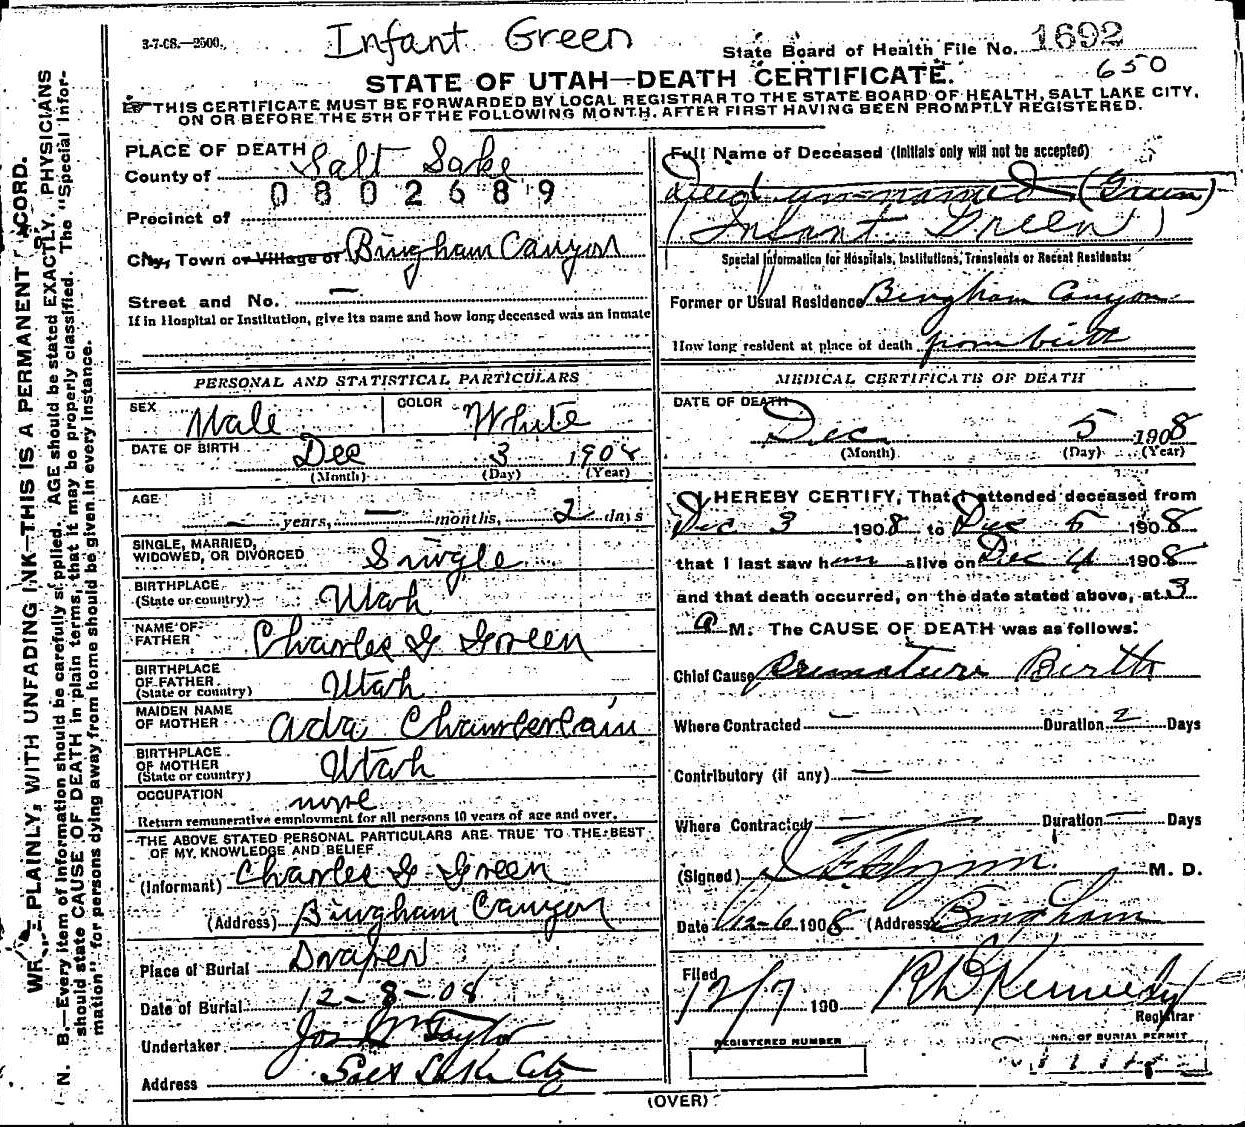 3-7-08.—2500.
Infant Green
State Board of Health File No. 1692
650
STATE OF UTAH—DEATH CERTIFICATE.
THIS CERTIFICATE MUST BE FORWARDED BY LOCAL REGISTRAR TO THE STATE BOARD OF HEALTH, SALT LAKE CITY,
ON OR BEFORE THE 5TH OF THE FOLLOWING MONTH, AFTER FIRST HAVING BEEN PROMPTLY REGISTERED.
PLACE OF DEATH
County of Salt Lake
0802689
Precinct of
City, Town or Village of Bingham Canyon
Street and No. —
If in Hospital or Institution, give its name and how long deceased was an inmate
PERSONAL AND STATISTICAL PARTICULARS
SEX Male COLOR White
DATE OF BIRTH Dec 3 1908
(Month) (Day) (Year)
AGE
— years, — months, 2 days
SINGLE, MARRIED,
WIDOWED, OR DIVORCED Single
BIRTHPLACE
(State or country) Utah
NAME OF
FATHER Charles G Green
BIRTHPLACE
OF FATHER
(State or country) Utah
MAIDEN NAME
OF MOTHER Ada Chamberlain
BIRTHPLACE
OF MOTHER
(State or country) Utah
OCCUPATION none
Return remunerative employment for all persons 10 years of age and over.
THE ABOVE STATED PERSONAL PARTICULARS ARE TRUE TO THE BEST
OF MY KNOWLEDGE AND BELIEF
(Informant) Charles G Green
(Address) Bingham Canyon
Place of Burial Draper
Date of Burial 12-8-08
Undertaker Jos Wm Taylor
Address Salt Lake City
Full Name of Deceased (Initials only will not be accepted)
Died un-named (Green)
(Infant Green)
Special Information for Hospitals, Institutions, Transients or Recent Residents:
Former or Usual Residence Bingham Canyon
How long resident at place of death from birth
MEDICAL CERTIFICATE OF DEATH
DATE OF DEATH
Dec 5 1908
(Month) (Day) (Year)
I HEREBY CERTIFY, That I attended deceased from
Dec 3 1908 to Dec 5 1908
that I last saw him alive on Dec 4 1908
and that death occurred, on the date stated above, at 3
a M. The CAUSE OF DEATH was as follows:
Chief Cause Premature Birth
Where Contracted — Duration 2 Days
Contributory (if any) —
Where Contracted — Duration — Days
(Signed) Flynn M. D.
Date 12-6 1908 (Address) Bingham
Filed
12/7 190 Kennedy
Registrar
REGISTERED NUMBER
NO. OF BURIAL PERMIT
(OVER)
WRITE PLAINLY, WITH UNFADING INK—THIS IS A PERMANENT RECORD.
N. B.—Every item of information should be carefully supplied. AGE should be stated EXACTLY. PHYSICIANS
should state CAUSE OF DEATH in plain terms, that it may be properly classified. The "Special Infor-
mation" for persons dying away from home should be given in every instance.